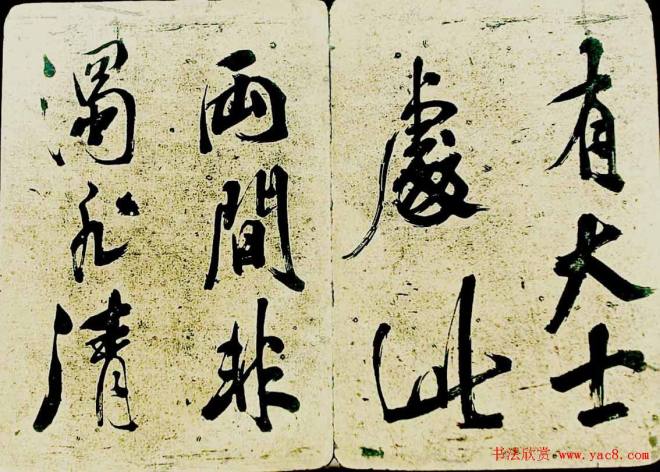 有大士
處此
兩間非
濁非清
书法欣赏·www.yac8.com